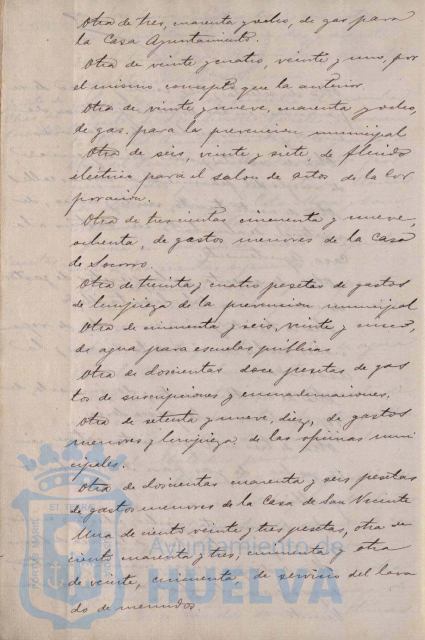 Otra de tres, cuarenta y ocho, de gas para
la Casa Ayuntamiento.
Otra de veinte y cuatro, veinte y uno, por
el mismo concepto que la anterior.
Otra de veinte y nueve, cuarenta y ocho,
de gas, para la prevencion municipal
Otra de seis, veinte y siete, de flúido
eléctrico para el salon de actos de la Cor
poración.
Otra de trescientas cincuenta y nueve,
ochenta, de gastos menores de la Casa
de Socorro.
Otra de treinta y cuatro pesetas de gastos
de limpieza de la prevencion municipal
Otra de cincuenta y seis, veinte y cinco,
de agua para escuelas públicas
Otra de doscientas doce pesetas de gas
tos de suscripciones y encuadernaciones.
Otra de setenta y nueve, diez, de gastos
menores y limpieza de las oficinas muni
cipales.
Otra de doscientas cuarenta y seis pesetas
de gastos menores de la Casa de San Vicente
Una de ciento veinte y tres pesetas, otra de
ciento cuarenta y tres, cincuenta y otra
de veinte, cincuenta, de servicio del lava
do de menudos.
Ayuntamiento de
HUELVA